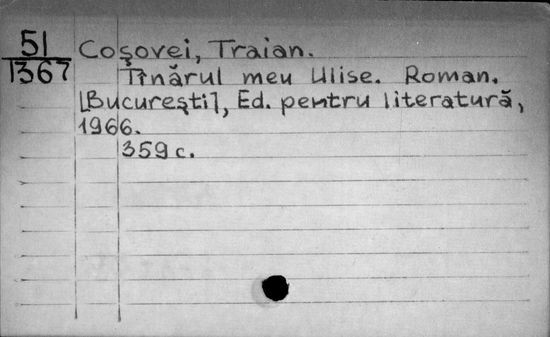 51
1367
Coşovei, Traian.
Tînărul meu Ulise. Roman.
[Bucureşti], Ed. pentru literatură,
1966.
359 c.